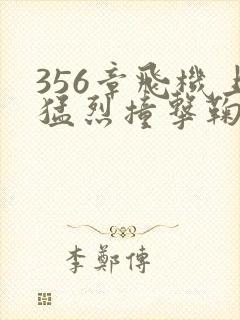 356章飛機上
猛烈撞擊鞠
李鄭傳